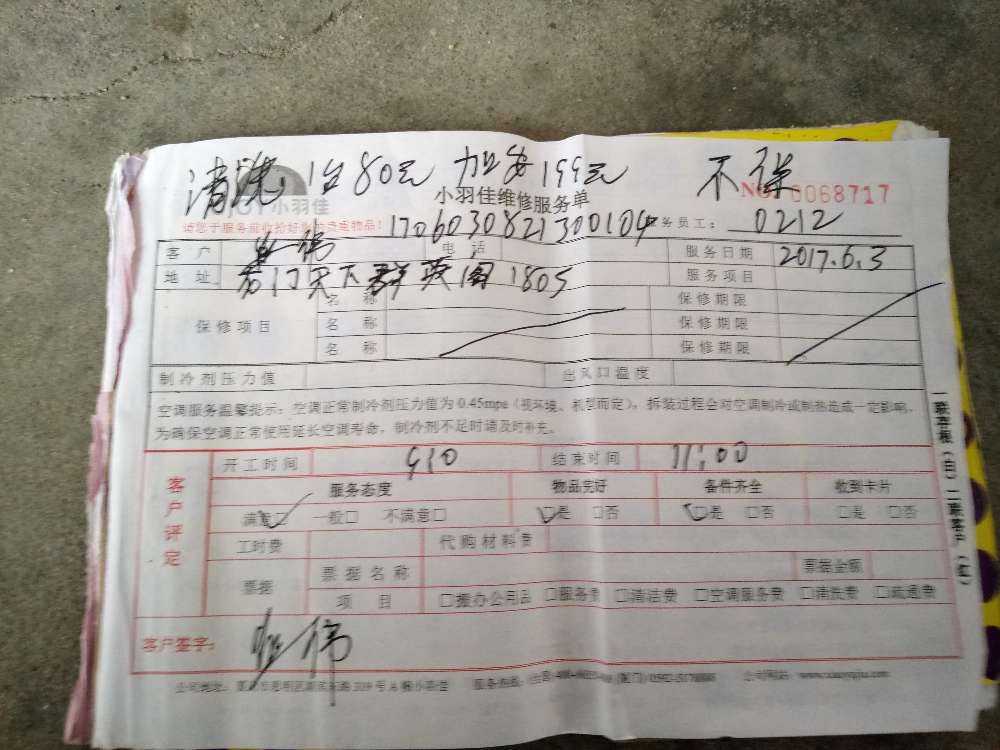 清洗1台80元 加安199元 不保
NO 0068717
JOY 小羽佳 小羽佳维修服务单
请您于服务前收拾好贵重物品! 1706030821300104 服务员工: 0212
客户 伟 电话 服务日期 2017.6.3
地址 天下群英阁1805 服务项目
保修项目 名称 保修期限
名称 保修期限
名称 保修期限
制冷剂压力值 出风口温度
空调服务温馨提示:空调正常制冷剂压力值为0.45mpa(视环境、机型而定),拆装过程会对空调制冷或制热造成一定影响,
为确保空调正常使用延长空调寿命,制冷剂不足时请及时补充。
客户评定
开工时间 910 结束时间 11:00
服务态度 物品完好 备件齐全 收到卡片
满意☑ 一般□ 不满意□ ☑是 □否 ☑是 □否 □是 □否
工时费 代购材料费
票据 票据名称 票据金额
项目 □搬办公用品 □服务费 □清洁费 □空调服务费 □清洗费 □疏通费
客户签字: 伟
公司地址: 服务热线: 公司网站:
一联存根(白)二联客户(红)